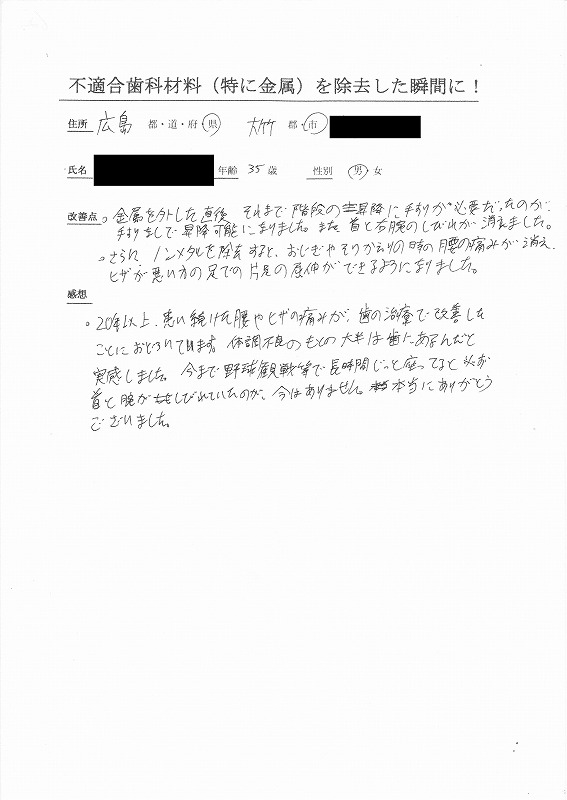 不適合歯科材料（特に金属）を除去した瞬間に！
住所 広島 都・道・府・県 大竹 郡・市
氏名 年齢 35歳 性別 男・女
改善点 。金属を外した直後、それまで階段の昇降に手すりが必要だったのが、
手すりなしで昇降可能になりました。また、首と右腕のしびれが消えました。
。さらに、ノンメタルを除去すると、おじぎやそりかえりの時の腰の痛みが消え、
ヒザが悪い方の足での片足の屈伸ができるようになりました。
感想
。20年以上、患い続けた腰やヒザの痛みが、歯の治療で改善した
ことにおどろいています。体調不良のもとの大半は歯にあるんだと
実感しました。今まで野球観戦等で長時間じっと座ってると必ず
首と腕がしびれていたのが、今はありません。本当にありがとう
ございました。